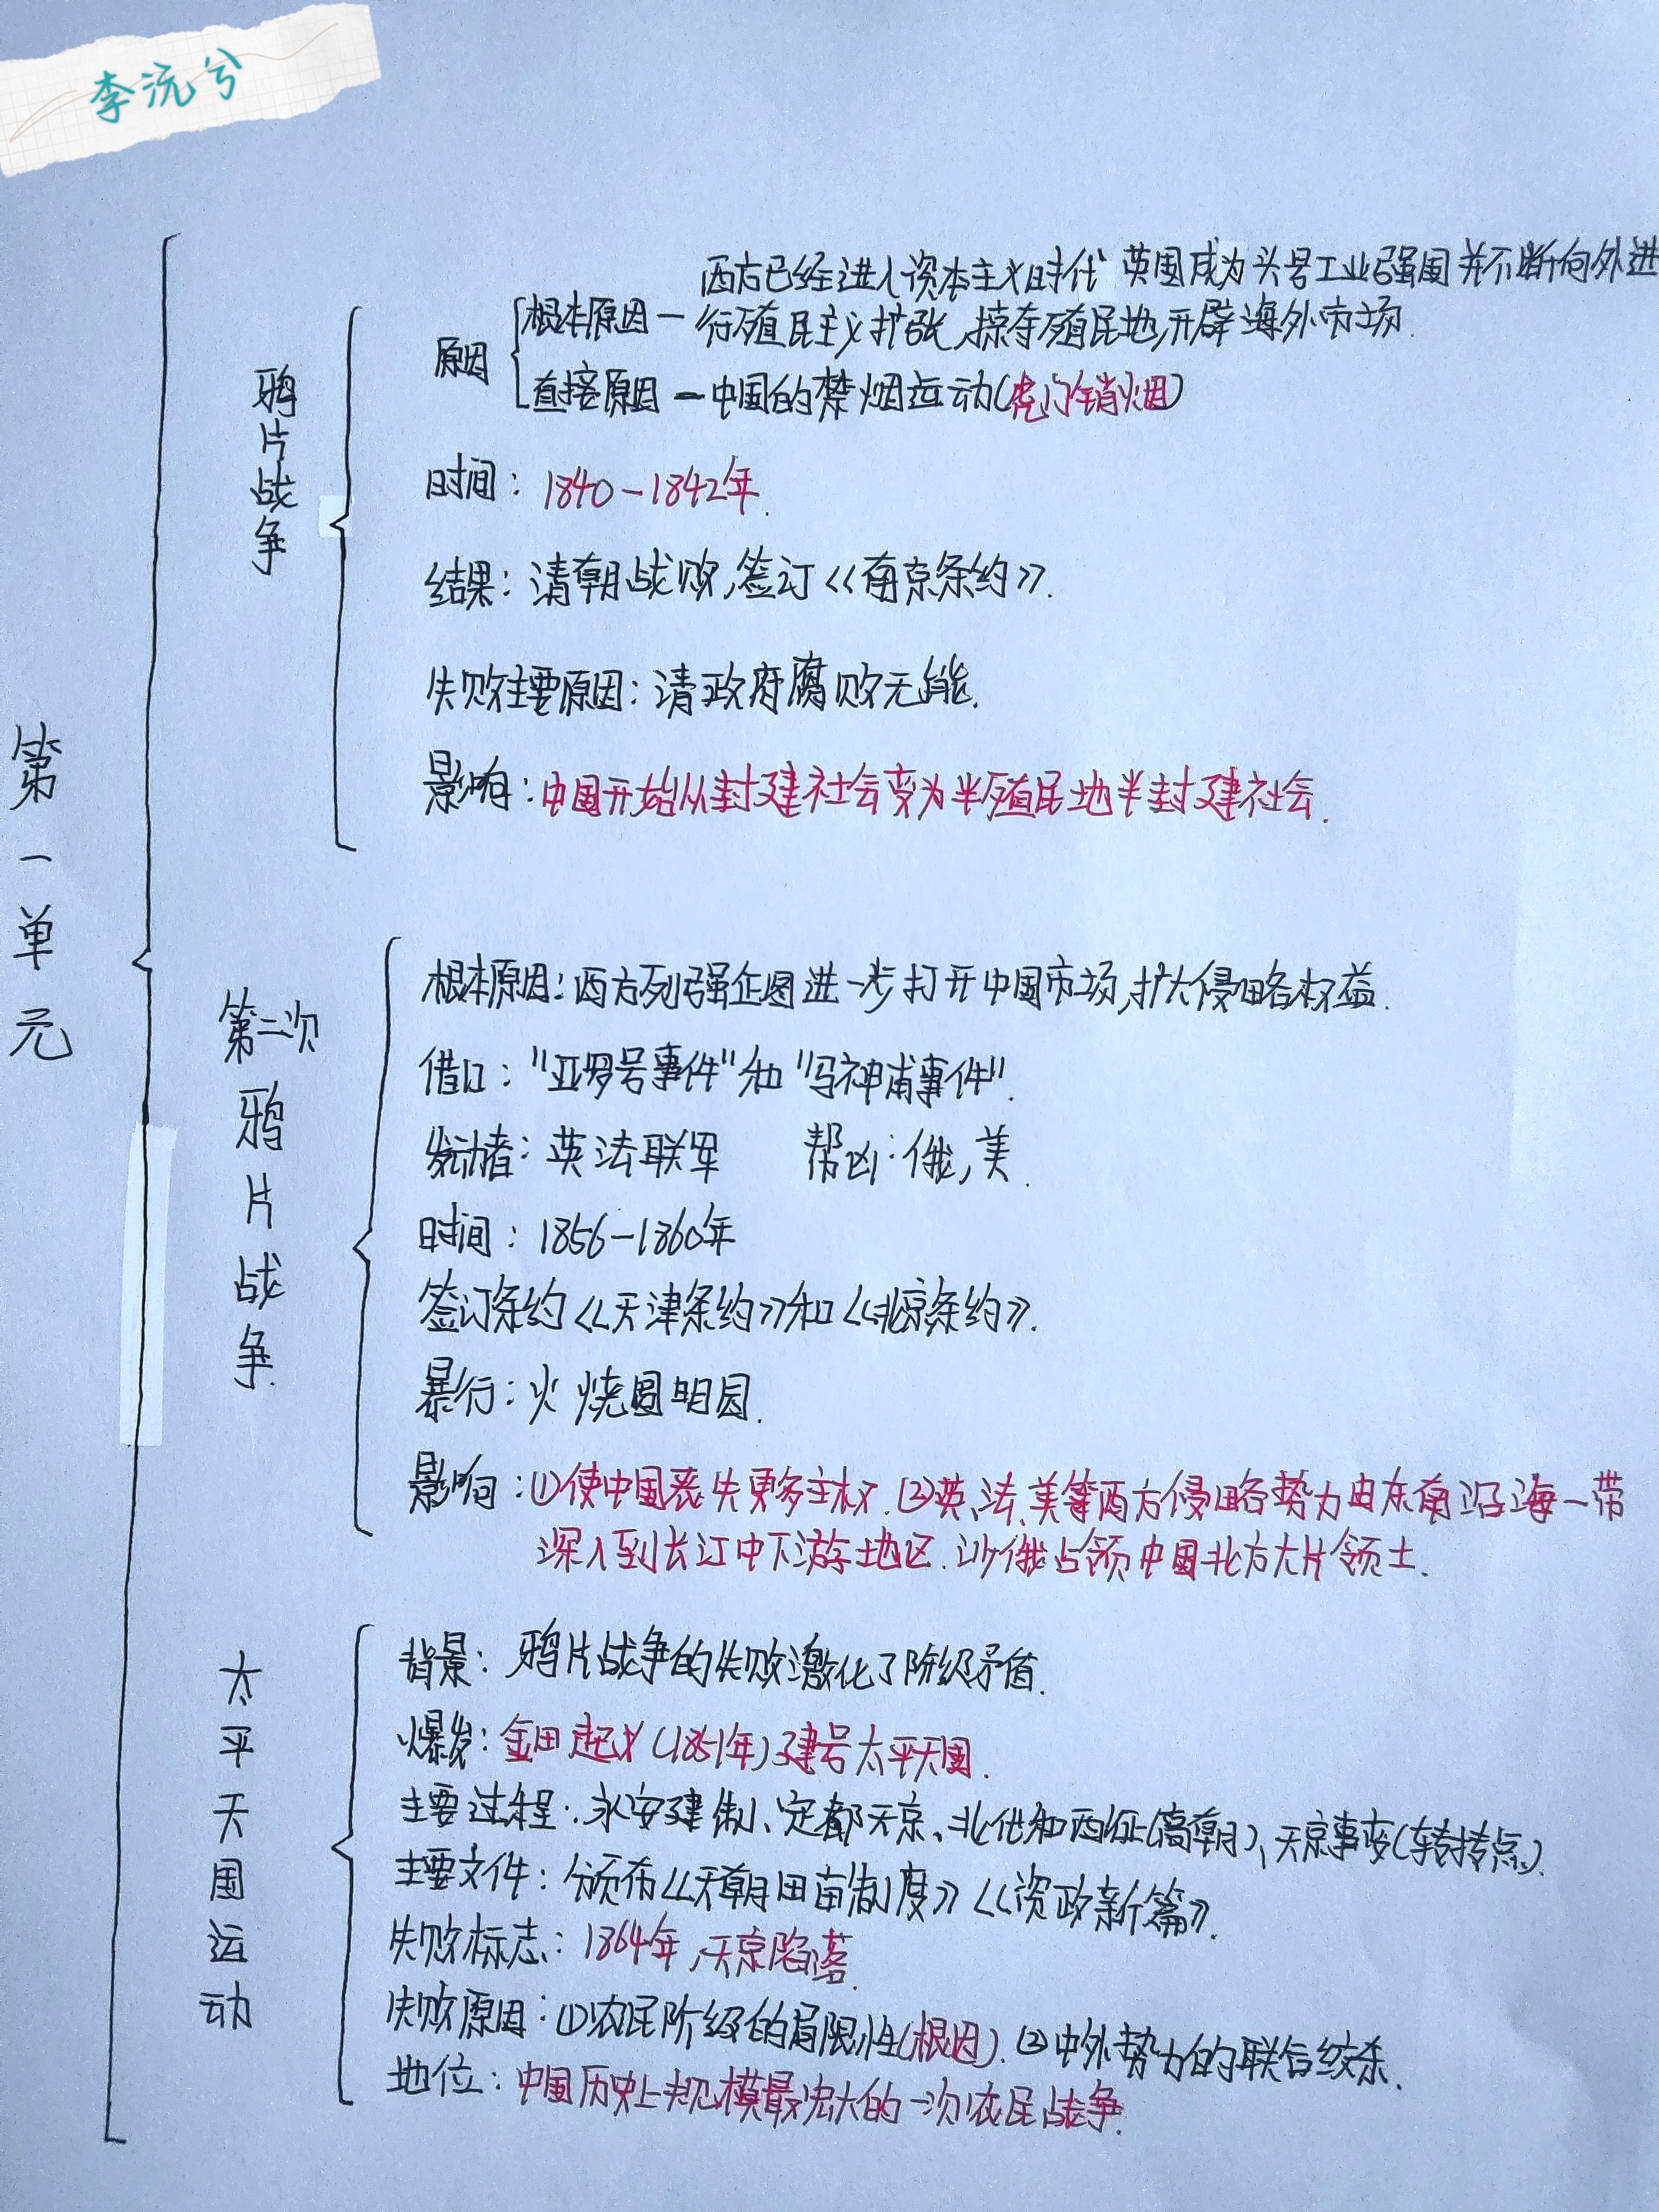 李沅兮
第一单元
鸦片战争
原因
根本原因一 西方已经进入资本主义时代 英国成为头号工业强国并不断向外进
行殖民主义扩张,掠夺殖民地,开辟海外市场.
直接原因一中国的禁烟运动(虎门销烟)
时间:1840-1842年.
结果:清朝战败,签订《南京条约》.
失败主要原因:清政府腐败无能.
影响:中国开始从封建社会变为半殖民地半封建社会.
第二次鸦片战争.
根本原因:西方列强企图进一步打开中国市场,扩大侵略权益.
借口:"亚罗号事件"和"马神甫事件".
发动者:英法联军 帮凶:俄,美.
时间:1856-1860年
签订条约《天津条约》和《北京条约》.
暴行:火烧圆明园.
影响:①使中国丧失更多主权.②英、法、美等西方侵略势力由东南沿海一带
深入到长江中下游地区.沙俄占领中国北方大片领土.
太平天国运动
背景:鸦片战争的失败激化了阶级矛盾.
爆发:金田起义(1851年)建号太平天国.
主要过程:永安建制、定都天京、北伐和西征(高朝)、天京事变(转折点).
主要文件:颁布《天朝田亩制度》《资政新篇》.
失败标志:1864年,天京陷落.
失败原因:①农民阶级的局限性(根因).②中外势力的联合绞杀.
地位:中国历史上规模最宏大的一次农民战争.